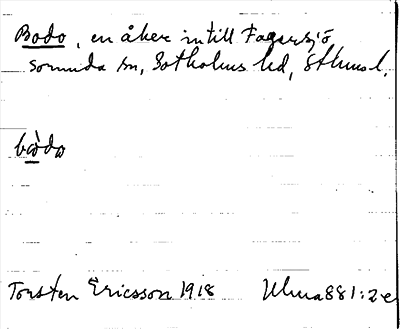 Bodo, en åker intill Fagersjö
Sorunda sn, Sotholms hd, Sthms l.
bòdo
Torsten Ericsson 1918 Ulma 881:2e